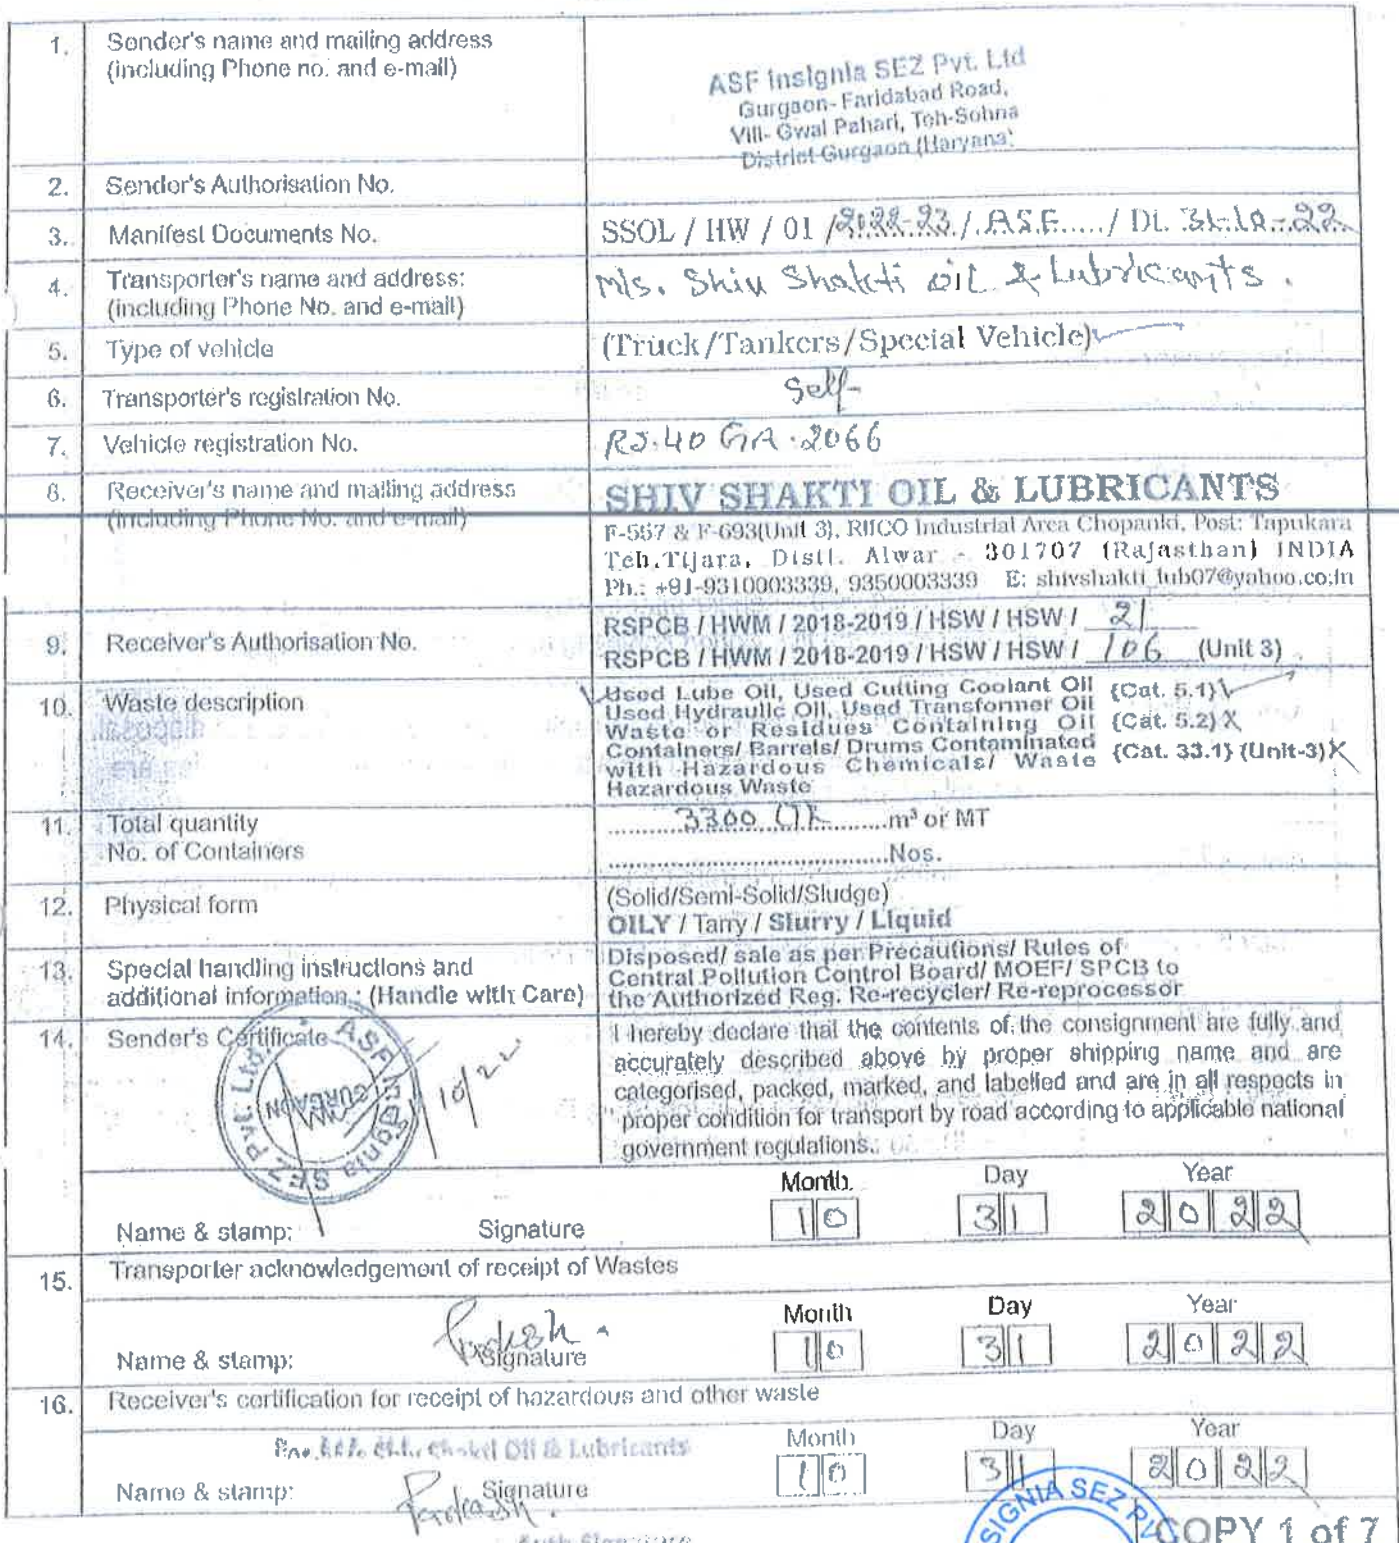 1. Sender's name and mailing address
(including Phone no. and e-mail)
ASF Insignia SEZ Pvt. Ltd
Gurgaon- Faridabad Road,
Vill- Gwal Pahari, Teh-Sohna
District Gurgaon (Haryana)
2. Sender's Authorisation No.
3. Manifest Documents No.
SSOL / HW / 01 /2022-23/.ASF...../ Dt. 31-10-22
4. Transporter's name and address:
(including Phone No. and e-mail)
M/s. Shiv Shakti oil & Lubricants.
5. Type of vehicle
(Truck/Tankers/Special Vehicle)
6. Transporter's registration No.
Self-
7. Vehicle registration No.
RJ.40 GA.2066
8. Receiver's name and mailing address
(including Phone No. and e-mail)
SHIV SHAKTI OIL & LUBRICANTS
F-557 & F-693(Unit 3), RIICO Industrial Area Chopanki, Post: Tapukara
Teh.Tijara, Distt. Alwar - 301707 (Rajasthan) INDIA
Ph.: +91-9310003339, 9350003339 E: shivshakti_lub07@yahoo.co.in
9. Receiver's Authorisation No.
RSPCB / HWM / 2018-2019 / HSW / HSW / 21
RSPCB / HWM / 2018-2019 / HSW / HSW / 106 (Unit 3)
10. Waste description
Used Lube Oil, Used Cutting Coolant Oil {Cat. 5.1}
Used Hydraulic Oil, Used Transformer Oil
Waste or Residues Containing Oil {Cat. 5.2} X
Containers/ Barrels/ Drums Contaminated
with Hazardous Chemicals/ Waste {Cat. 33.1} (Unit-3) X
Hazardous Waste
11. Total quantity
No. of Containers
3300 Ltr m³ or MT
Nos.
12. Physical form
(Solid/Semi-Solid/Sludge)
OILY / Tarry / Slurry / Liquid
13. Special handling instructions and
additional information : (Handle with Care)
Disposed/ sale as per Precautions/ Rules of
Central Pollution Control Board/ MOEF/ SPCB to
the Authorized Reg. Re-recycler/ Re-reprocessor
14. Sender's Certificate
ASF Insignia SEZ Pvt. Ltd.
GURGAON
10/22
I hereby declare that the contents of the consignment are fully and
accurately described above by proper shipping name and are
categorised, packed, marked, and labelled and are in all respects in
proper condition for transport by road according to applicable national
government regulations.
Month Day Year
10 31 2022
Name & stamp: Signature
15. Transporter acknowledgement of receipt of Wastes
Month Day Year
Prakash
10 31 2022
Name & stamp: Signature
16. Receiver's certification for receipt of hazardous and other waste
Oil & Lubricants
Month Day Year
10 31 2022
Name & stamp: Signature
Prakash.
SIGNIA SEZ PV
COPY 1 of 7